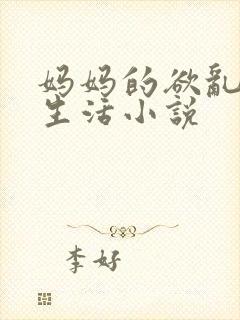 妈妈的欲乱
生活小说
李好